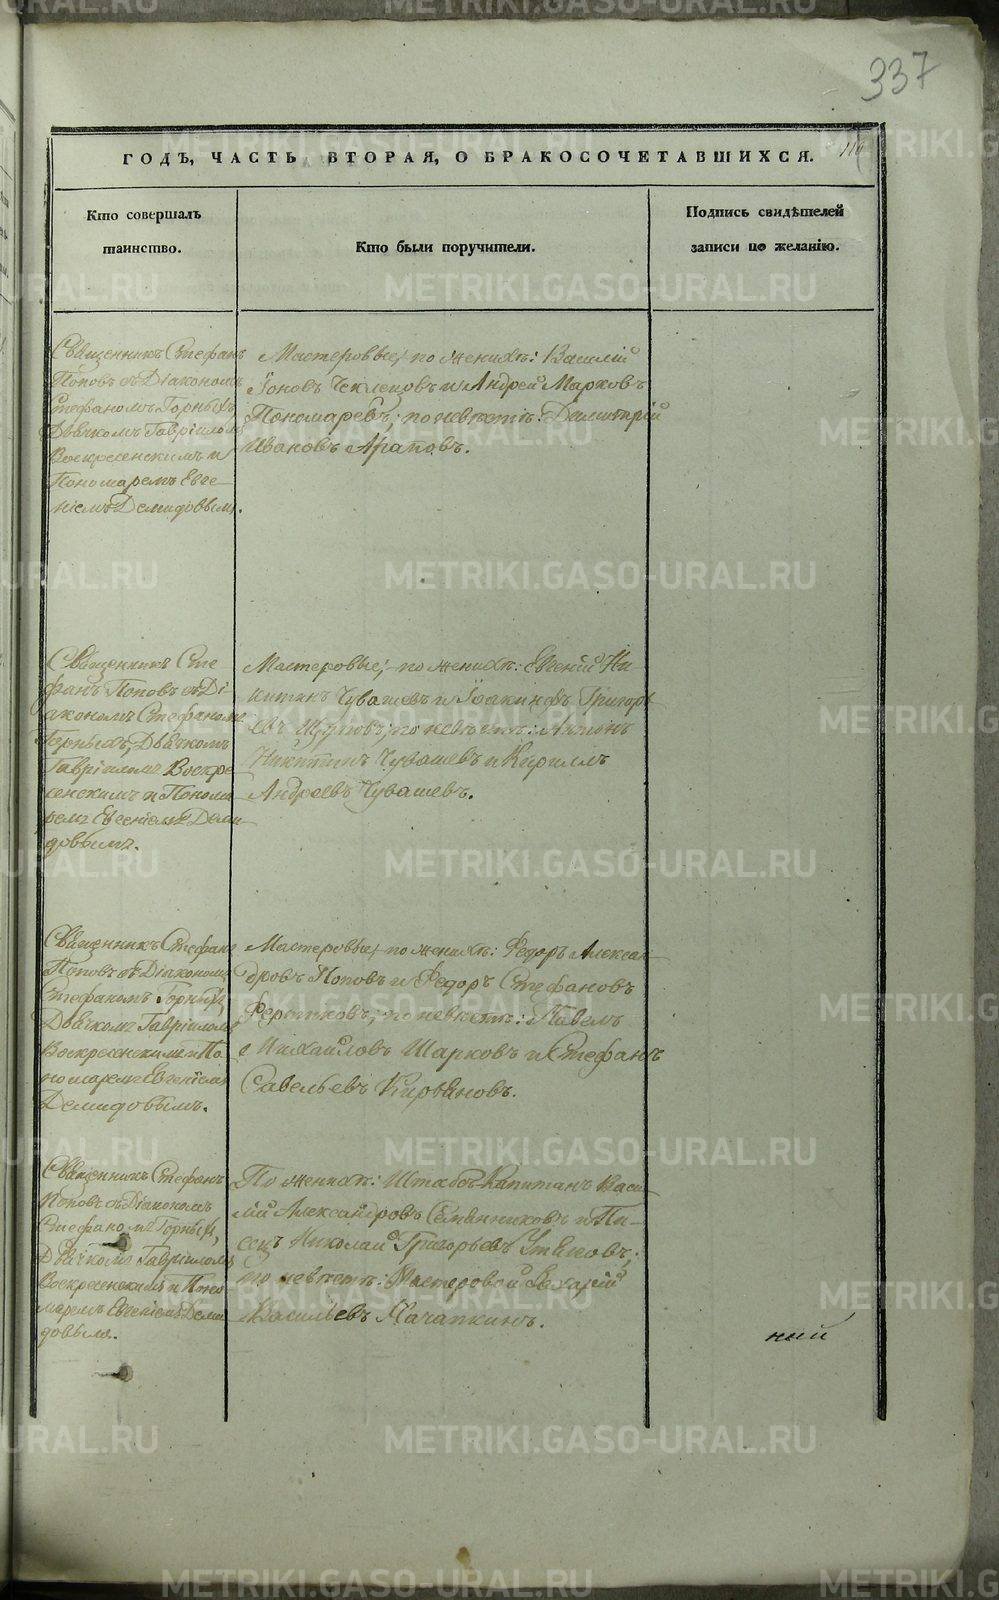 337
ГОДЪ, ЧАСТЬ ВТОРАЯ, О БРАКОСОЧЕТАВШИХСЯ.
Кто совершалъ
таинство.
Кто были поручители.
Подпись свидѣтелей
записи по желанію.
Священникъ Стефанъ
Поповъ съ Діакономъ
Стефаномъ Горныхъ,
Дьячкомъ Гавріиломъ
Воскресенскимъ и
Пономаремъ Евге-
ніемъ Демидовымъ.
Мастеровые, по женихѣ: Василій
Іоновъ и Андрей Марковъ
Пономаревъ; по невѣстѣ: Димитрій
Ивановъ Араповъ.
Священникъ Сте
фанъ Поповъ съ Ді-
акономъ Стефаномъ
Горныхъ, Дьячкомъ
Гавріиломъ Воскре
сенскимъ и Понома
ремъ Евгеніемъ Деми
довымъ.
Мастеровые, по женихѣ: Евгеній Ни-
китинъ Чувашевъ и Іоакинфъ Григорь
евъ по невѣстѣ: Антонъ
Никитинъ Чувашевъ и Кириллъ
Андреевъ Чувашевъ.
Священникъ Стефанъ
Поповъ съ Діакономъ
Стефаномъ Горныхъ,
Дьячкомъ Гавріиломъ
Воскресенскимъ и По
номаремъ Евгеніемъ
Демидовымъ.
Мастеровые, по женихѣ: Федоръ Алексан-
дровъ Поповъ и Федоръ Стефановъ
по невѣстѣ: Павелъ
Михайловъ Шарковъ и Стефанъ
Савельевъ Кирьяновъ.
Священникъ Стефанъ
Поповъ съ Діакономъ
Стефаномъ Горныхъ,
Дьячкомъ Гавріиломъ
Воскресенскимъ и Поно
маремъ Евгеніемъ Деми
довымъ.
По женихѣ: Штабсъ-Капитанъ Васи-
лій Александровъ и Пи-
сецъ Николай Григорьевъ
по невѣстѣ: Мастеровой Захарій
Васильевъ Мачапкинъ.
ний
METRIKI.GASO-URAL.RU